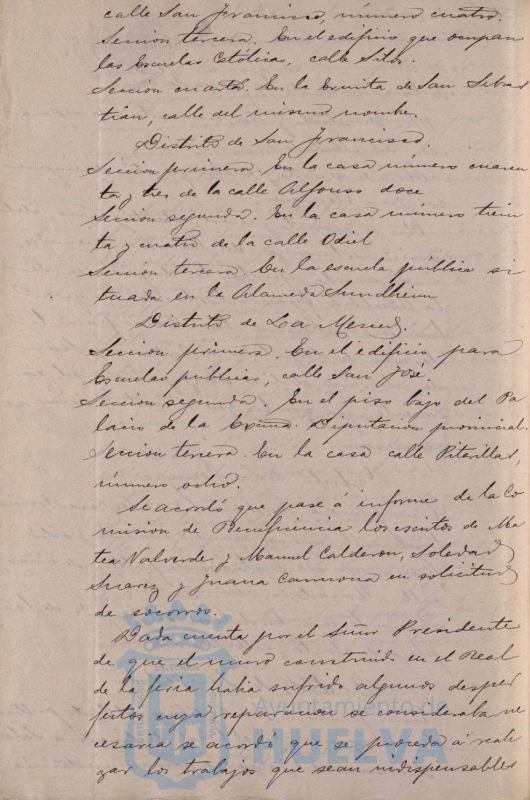 calle San Francisco, número cuatro.
Sección tercera. En el edificio que ocupan
las Escuelas Católicas, calle Silos.
Sección cuarta. En la Ermita de San Sebas
tián, calle del mismo nombre.
Distrito de San Francisco.
Sección primera. En la casa número cuaren
ta y tres de la calle Alfonso doce
Sección segunda. En la casa número trein
ta y cuatro de la calle Odiel
Sección tercera. En la escuela pública si
tuada en la Alameda Sundheim
Distrito de La Merced.
Sección primera. En el edificio para
Escuelas públicas, calle San José.
Sección segunda. En el piso bajo del Pa
lacio de la Excma. Diputación provincial.
Sección tercera. En la casa calle Piterillas,
número ocho.
Se acordó que pase á informe de la Co
misión de Beneficencia los escritos de Ma
tea Valverde y Manuel Calderon, Soledad
Suarez y Juana Carmona en solicitud
de socorros.
Dada cuenta por el Señor Presidente
de que el muro construido en el Real
de la feria habia sufrido algunos desper
fectos cuya reparación se consideraba ne
cesaria se acordó que se proceda á reali
zar los trabajos que sean indispensables
Ayuntamiento de
HUELVA